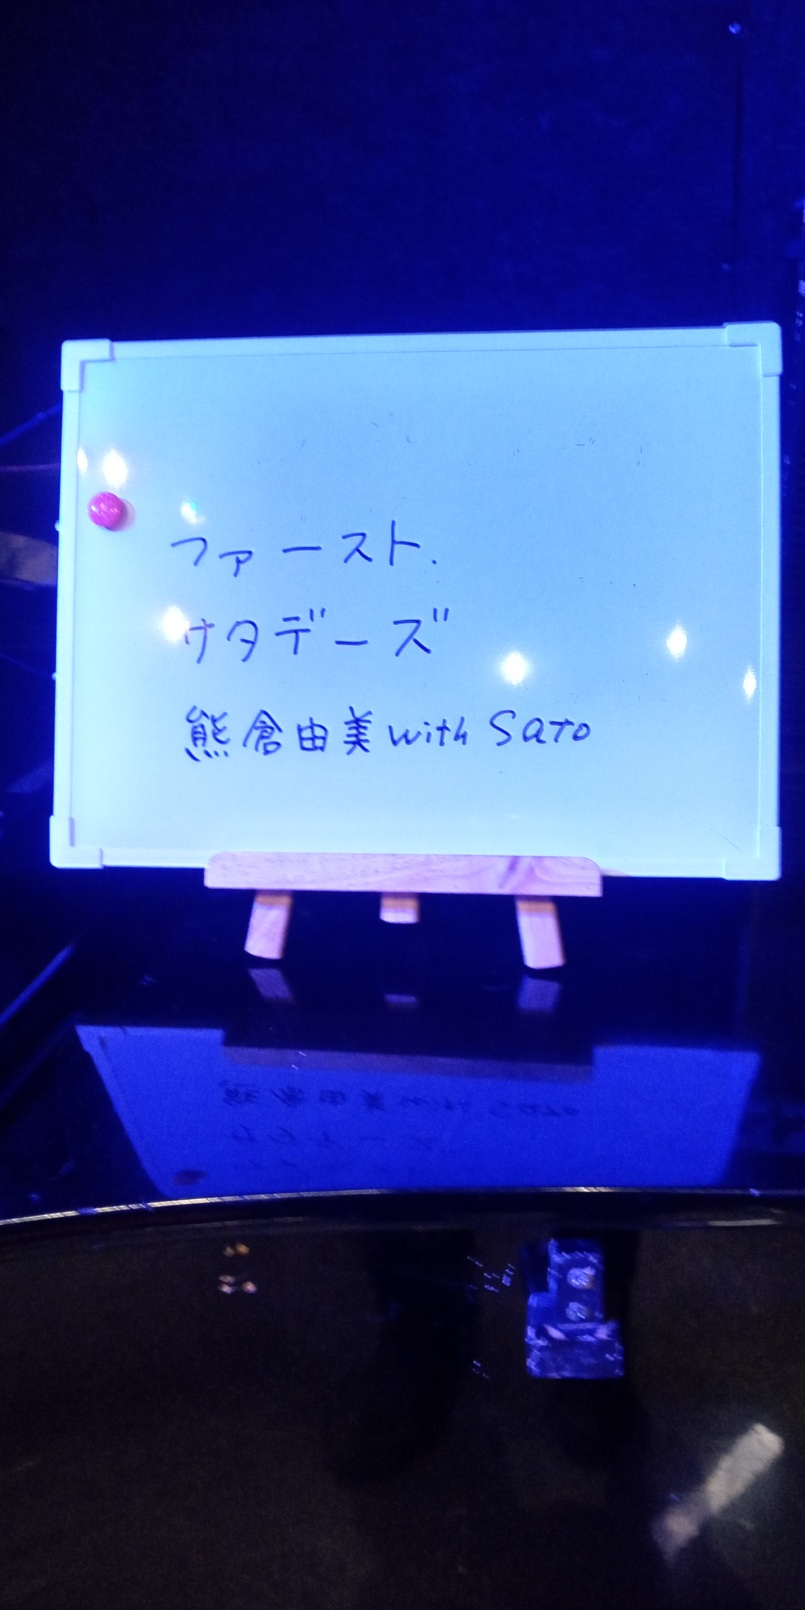 ファースト.
サタデーズ
熊倉由美 with Sato